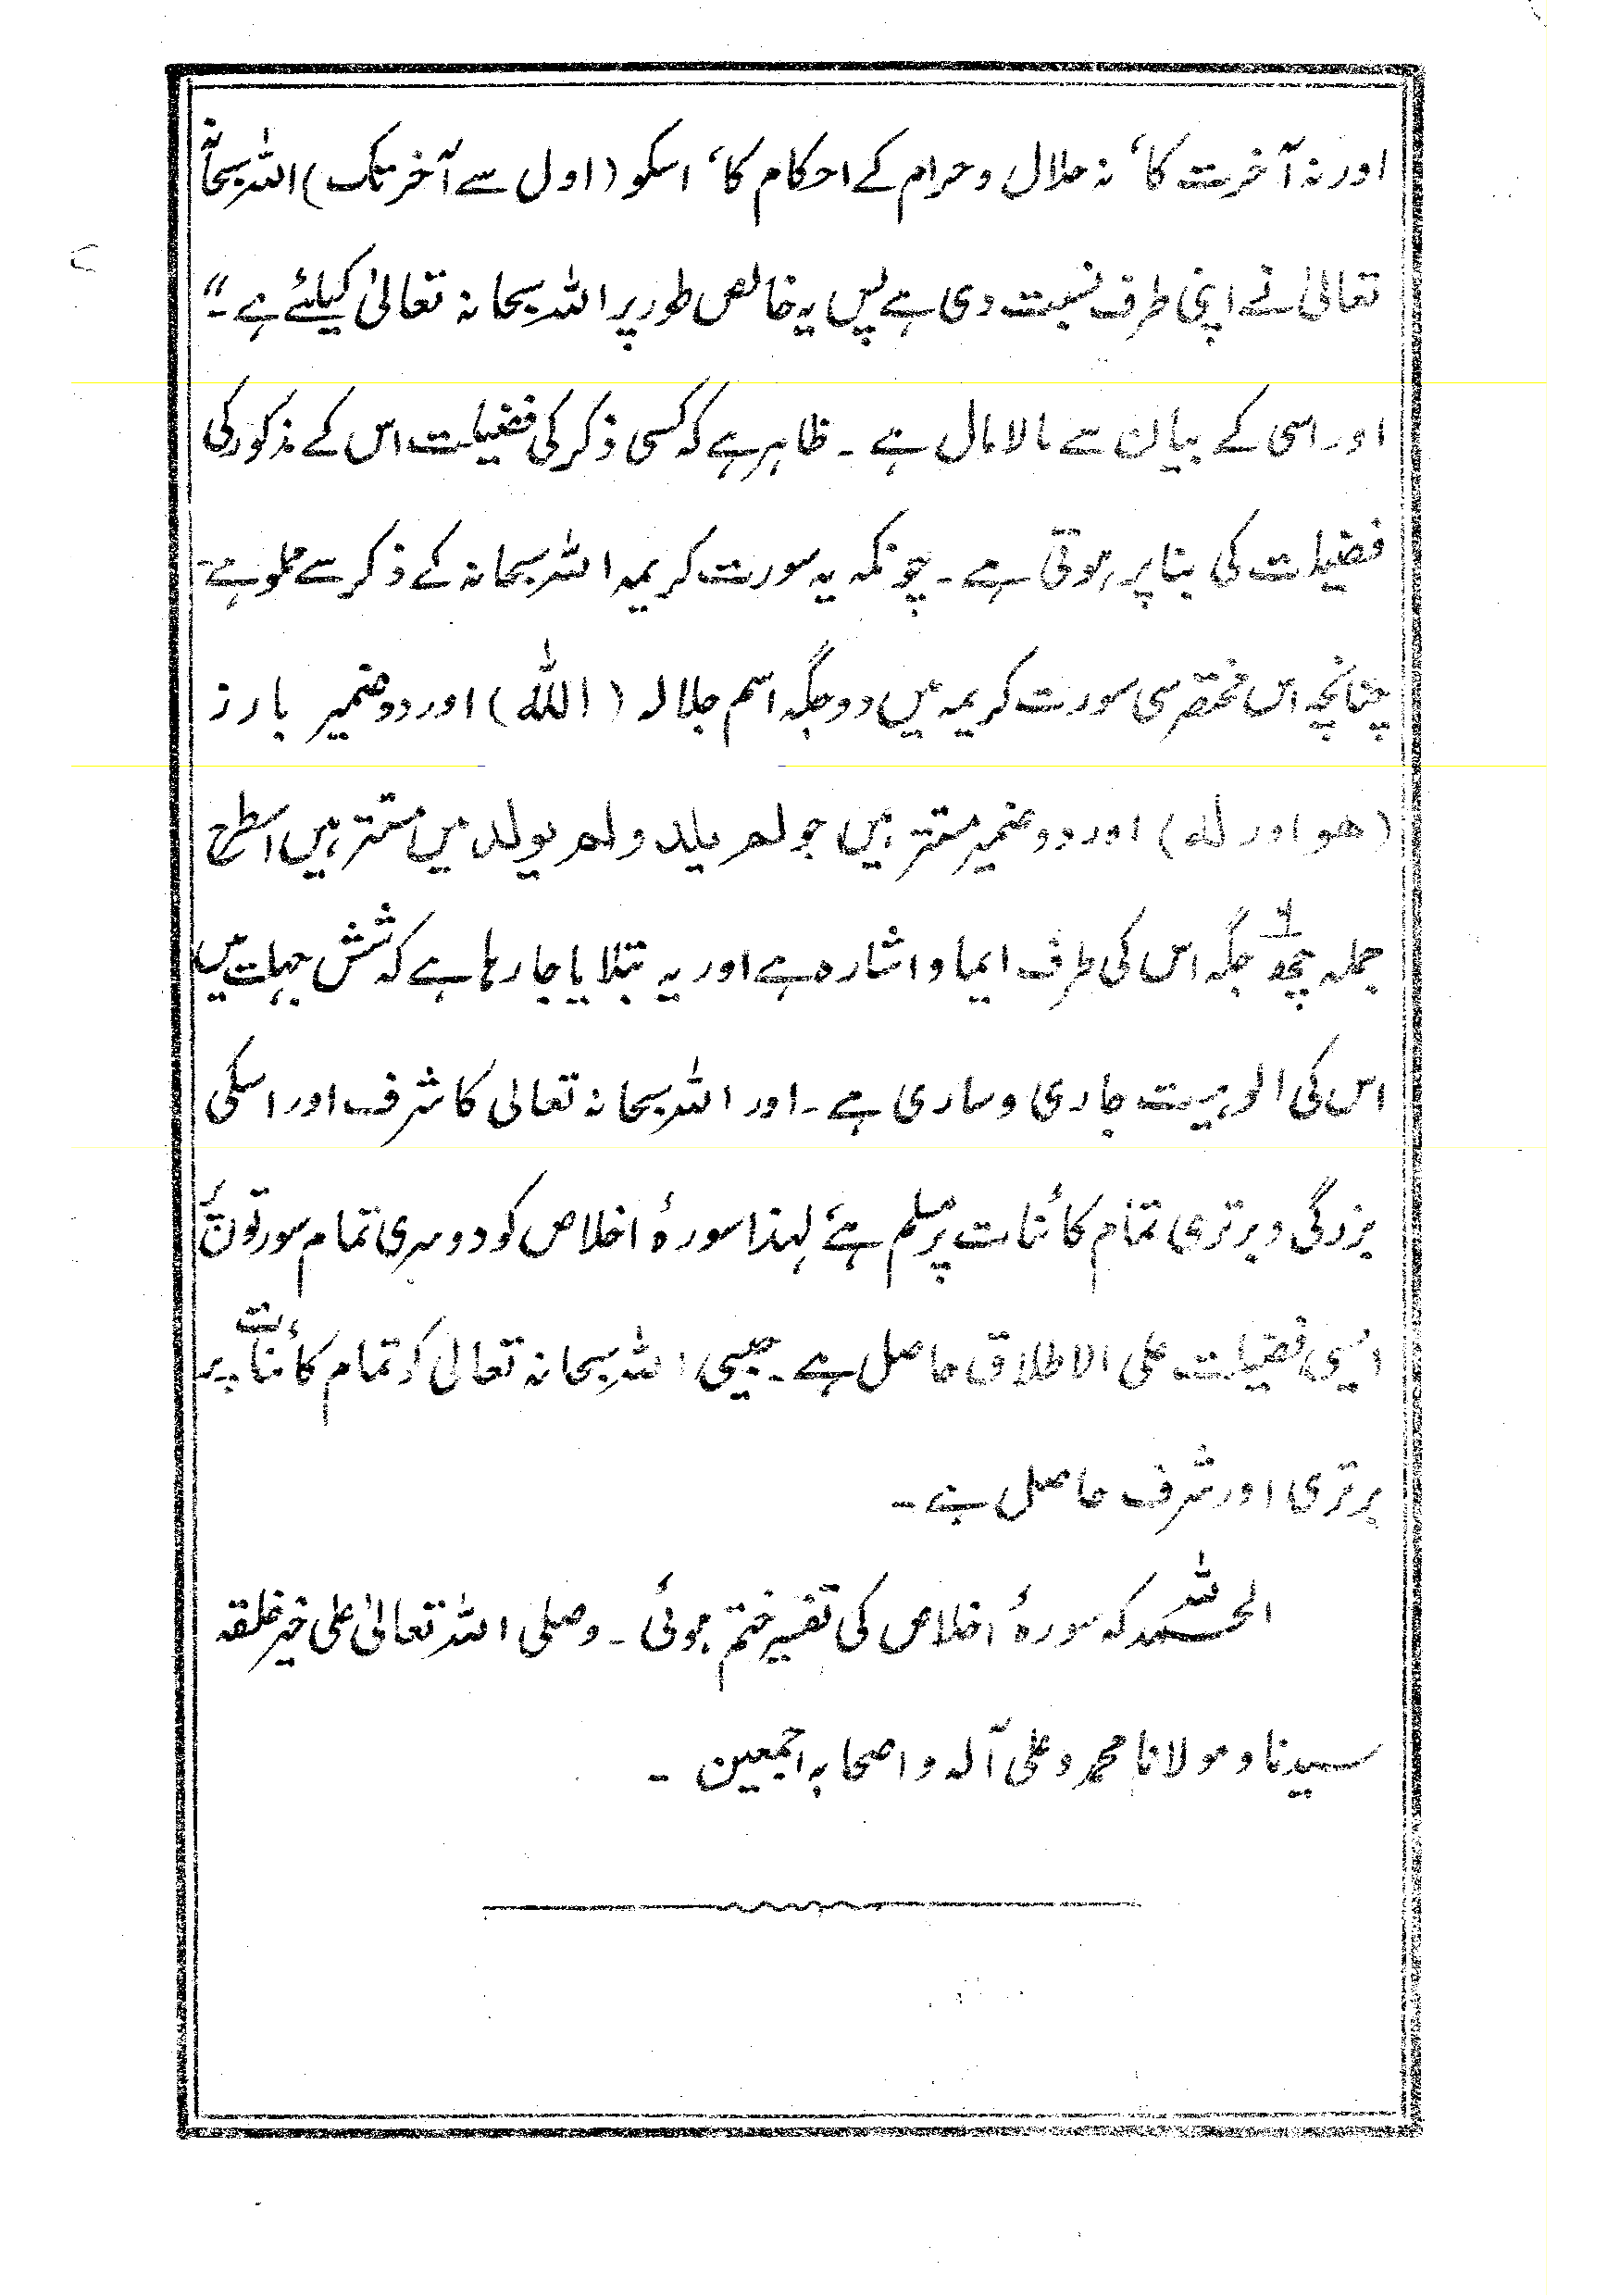 اور نہ آخرت کا، نہ حلال و حرام کے احکام کا، اسکو (اول سے آخر تک) اللہ سبحانہٗ
تعالیٰ نے اپنی طرف نسبت دی ہے پس یہ خالص طور پر اللہ سبحانہ تعالیٰ کیلئے ہے۔"
اور اسی کے بیان سے مالا مال ہے۔ ظاہر ہے کہ کسی ذکر کی فضیلت اس کے مذکور کی
فضیلت کی بنا پر ہوتی ہے۔ چونکہ یہ سورت کریمہ اللہ سبحانہ کے ذکر سے مملو ہے۔
چنانچہ اس مختصر سی سورت کریمہ میں دو جگہ اسم جلالہ (اللہ) اور دو ضمیر بارز
(هو اور له) اور دو ضمیر مستتر ہیں جو لم یلد ولم یولد میں مستتر ہیں اسطرح
جملہ چھ ۶ جگہ اس کی طرف ایما و اشارہ ہے اور یہ بتلایا جا رہا ہے کہ شش جہات میں
اس کی الوہیت جاری و ساری ہے۔ اور اللہ سبحانہ تعالی کا شرف اور اسکی
بزرگی و برتری تمام کائنات پر مسلم ہے، لہذا سورۂ اخلاص کو دوسری تمام سورتوں پر
ایسی فضیلت علی الاطلاق حاصل ہے۔ جیسی اللہ سبحانہ تعالی کو تمام کائنات پر
برتری اور شرف حاصل ہے۔
الحمد للہ کہ سورۂ اخلاص کی تفسیر ختم ہوئی۔ وصلی اللہ تعالیٰ علی خیر خلقہ
سیدنا و مولانا محمد و علی آلہ و اصحابہ اجمعین۔